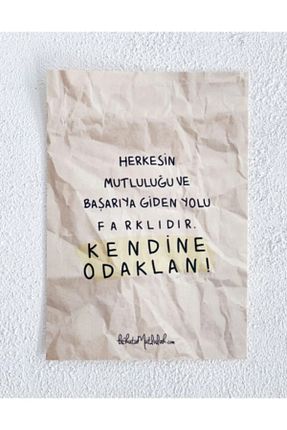 HERKESİN
MUTLULUĞU VE
BAŞARIYA GİDEN YOLU
FARKLIDIR.
KENDİNE
ODAKLAN!